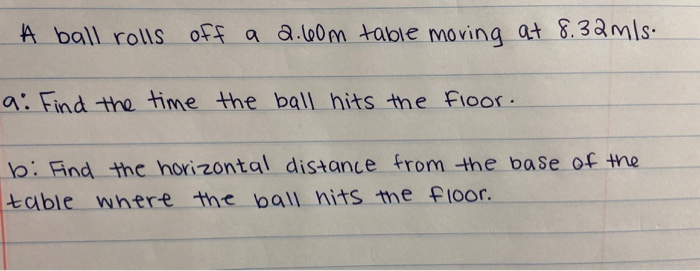 A ball rolls off a 2.60m table moving at 8.32m/s.
a: Find the time the ball hits the floor.
b: Find the horizontal distance from the base of the
table where the ball hits the floor.